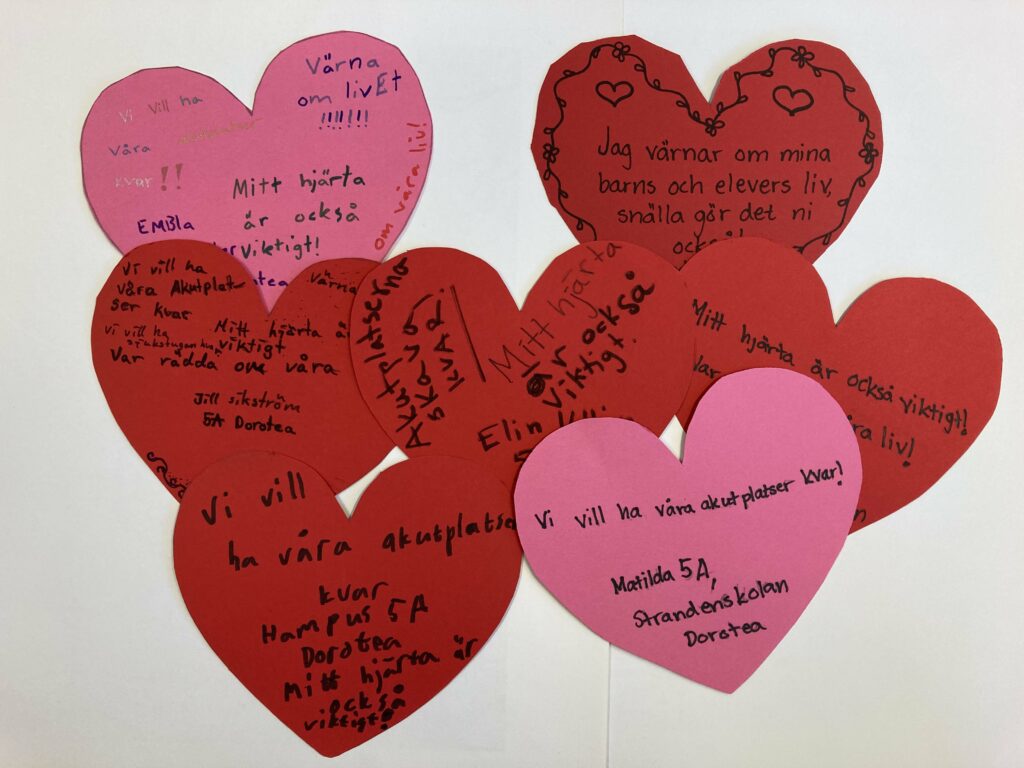 Vi vill ha
våra
kvar!!
Värna
om livEt
!!!!!!!
om våra liv!
Mitt hjärta
är också
viktigt!
EMBla
Jag värnar om mina
barns och elevers liv,
snälla gör det ni
också!
Vi vill ha
våra Akutplat
ser kvar
vi vill ha
värna
Mitt hjärta är
viktigt
Var rädda om våra
Jill sikström
5A Dorotea
Akutplatserna
ska va
kvar.
Mitt hjärta
är också
viktigt!
Elin
Mitt hjärta är också viktigt!
Var
liv!
Vi vill
ha våra akutplatse
kvar
Hampus 5A
Dorotea
Mitt hjärta är
också
viktigt!
Vi vill ha våra akutplatser kvar!
Matilda 5A,
Strandenskolan
Dorotea